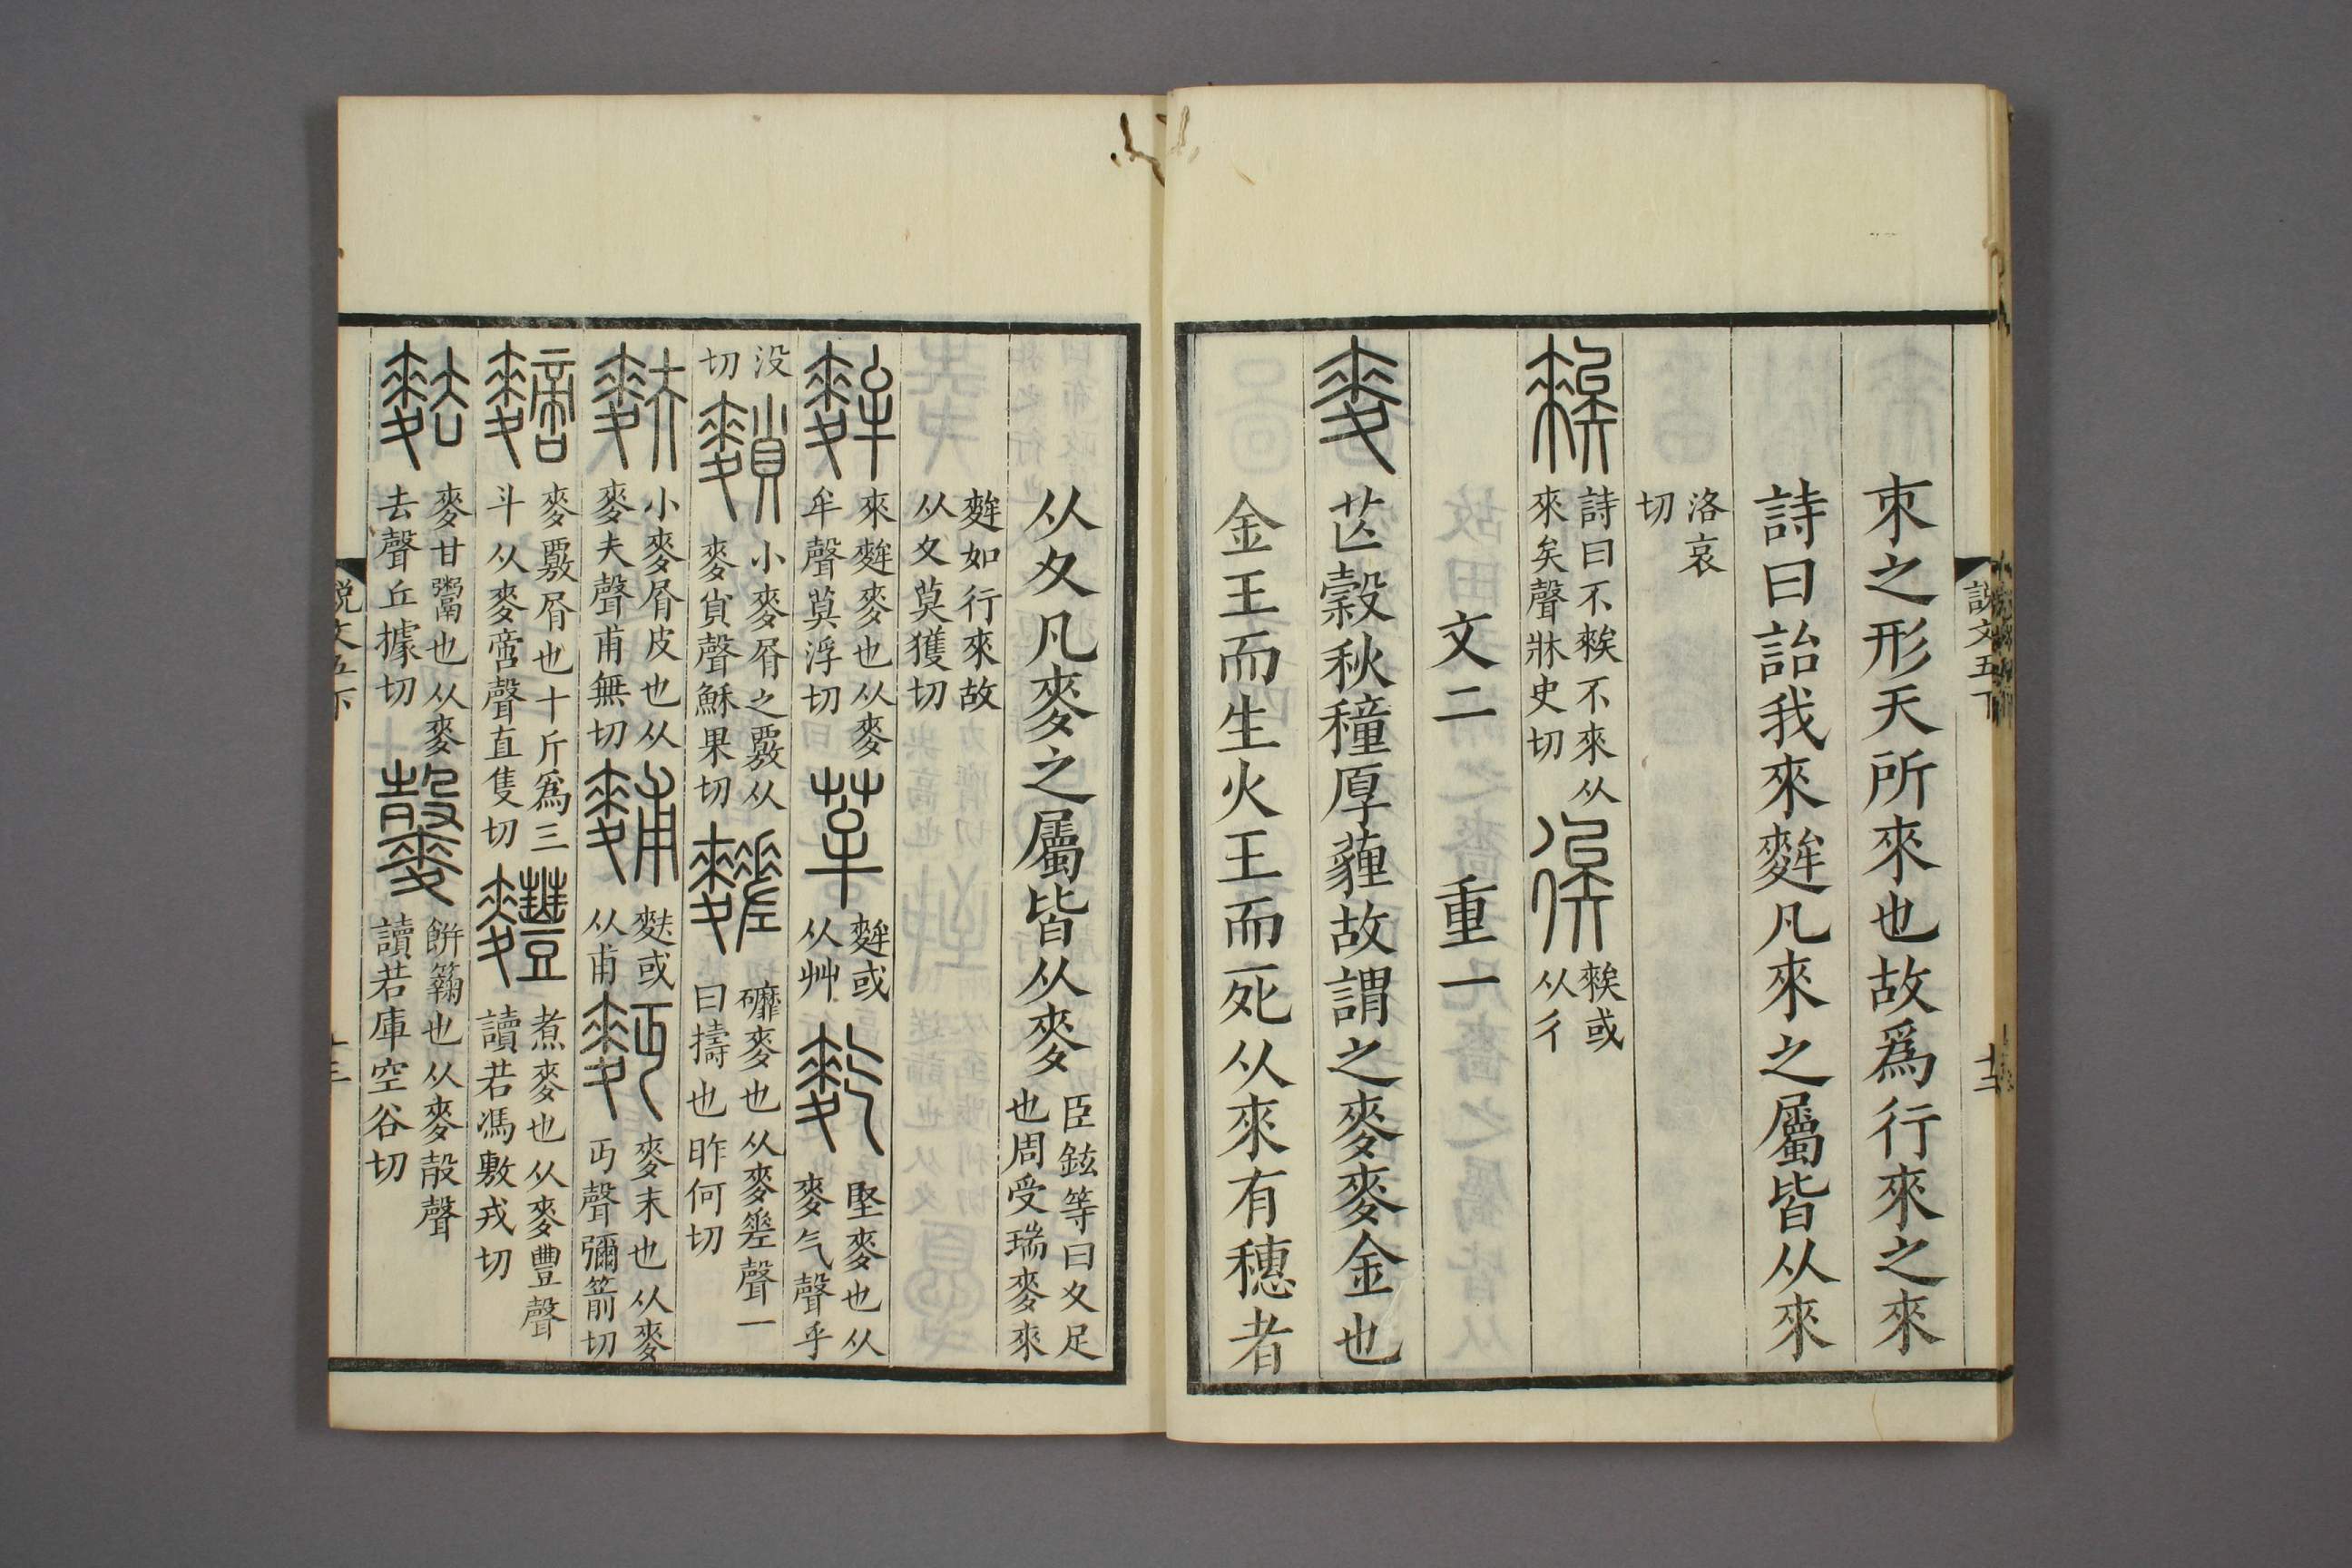 朿之形天所來也故爲行來之來
詩曰詒我來麰凡來之屬皆从來
洛哀
切
𥟲 詩曰不𥟲不來从
來矣聲牀史切
𢓪 𥟲或
从彳
文二 重一
麥 芒穀秋穜厚薶故謂之麥麥金也
金王而生火王而死从來有穗者
从夊凡麥之屬皆从麥 臣鉉等曰夊足
也周受瑞麥來
麰如行來故
从夊莫獲切
麰 來麰麥也从麥
牟聲莫浮切
䒫 麰或
从艸
麧 堅麥也从
麥气聲乎
没
切
䴹 小麥屑之覈从
麥𧴪聲穌果切
䴾 䃺麥也从麥𡍮聲一
曰擣也昨何切
麩 小麥屑皮也从
麥夫聲甫無切
䴸 麩或
从甫
麪 麥末也从麥
丏聲彌箭切
䵂 麥覈屑也十斤爲三
斗从麥啻聲直隻切
麷 煮麥也从麥豐聲
讀若馮敷戎切
麮 麥甘鬻也从麥
去聲丘據切
䴽 餅䴭也从麥㱿聲
讀若庫空谷切
説文五下
十二
説文五下
十三